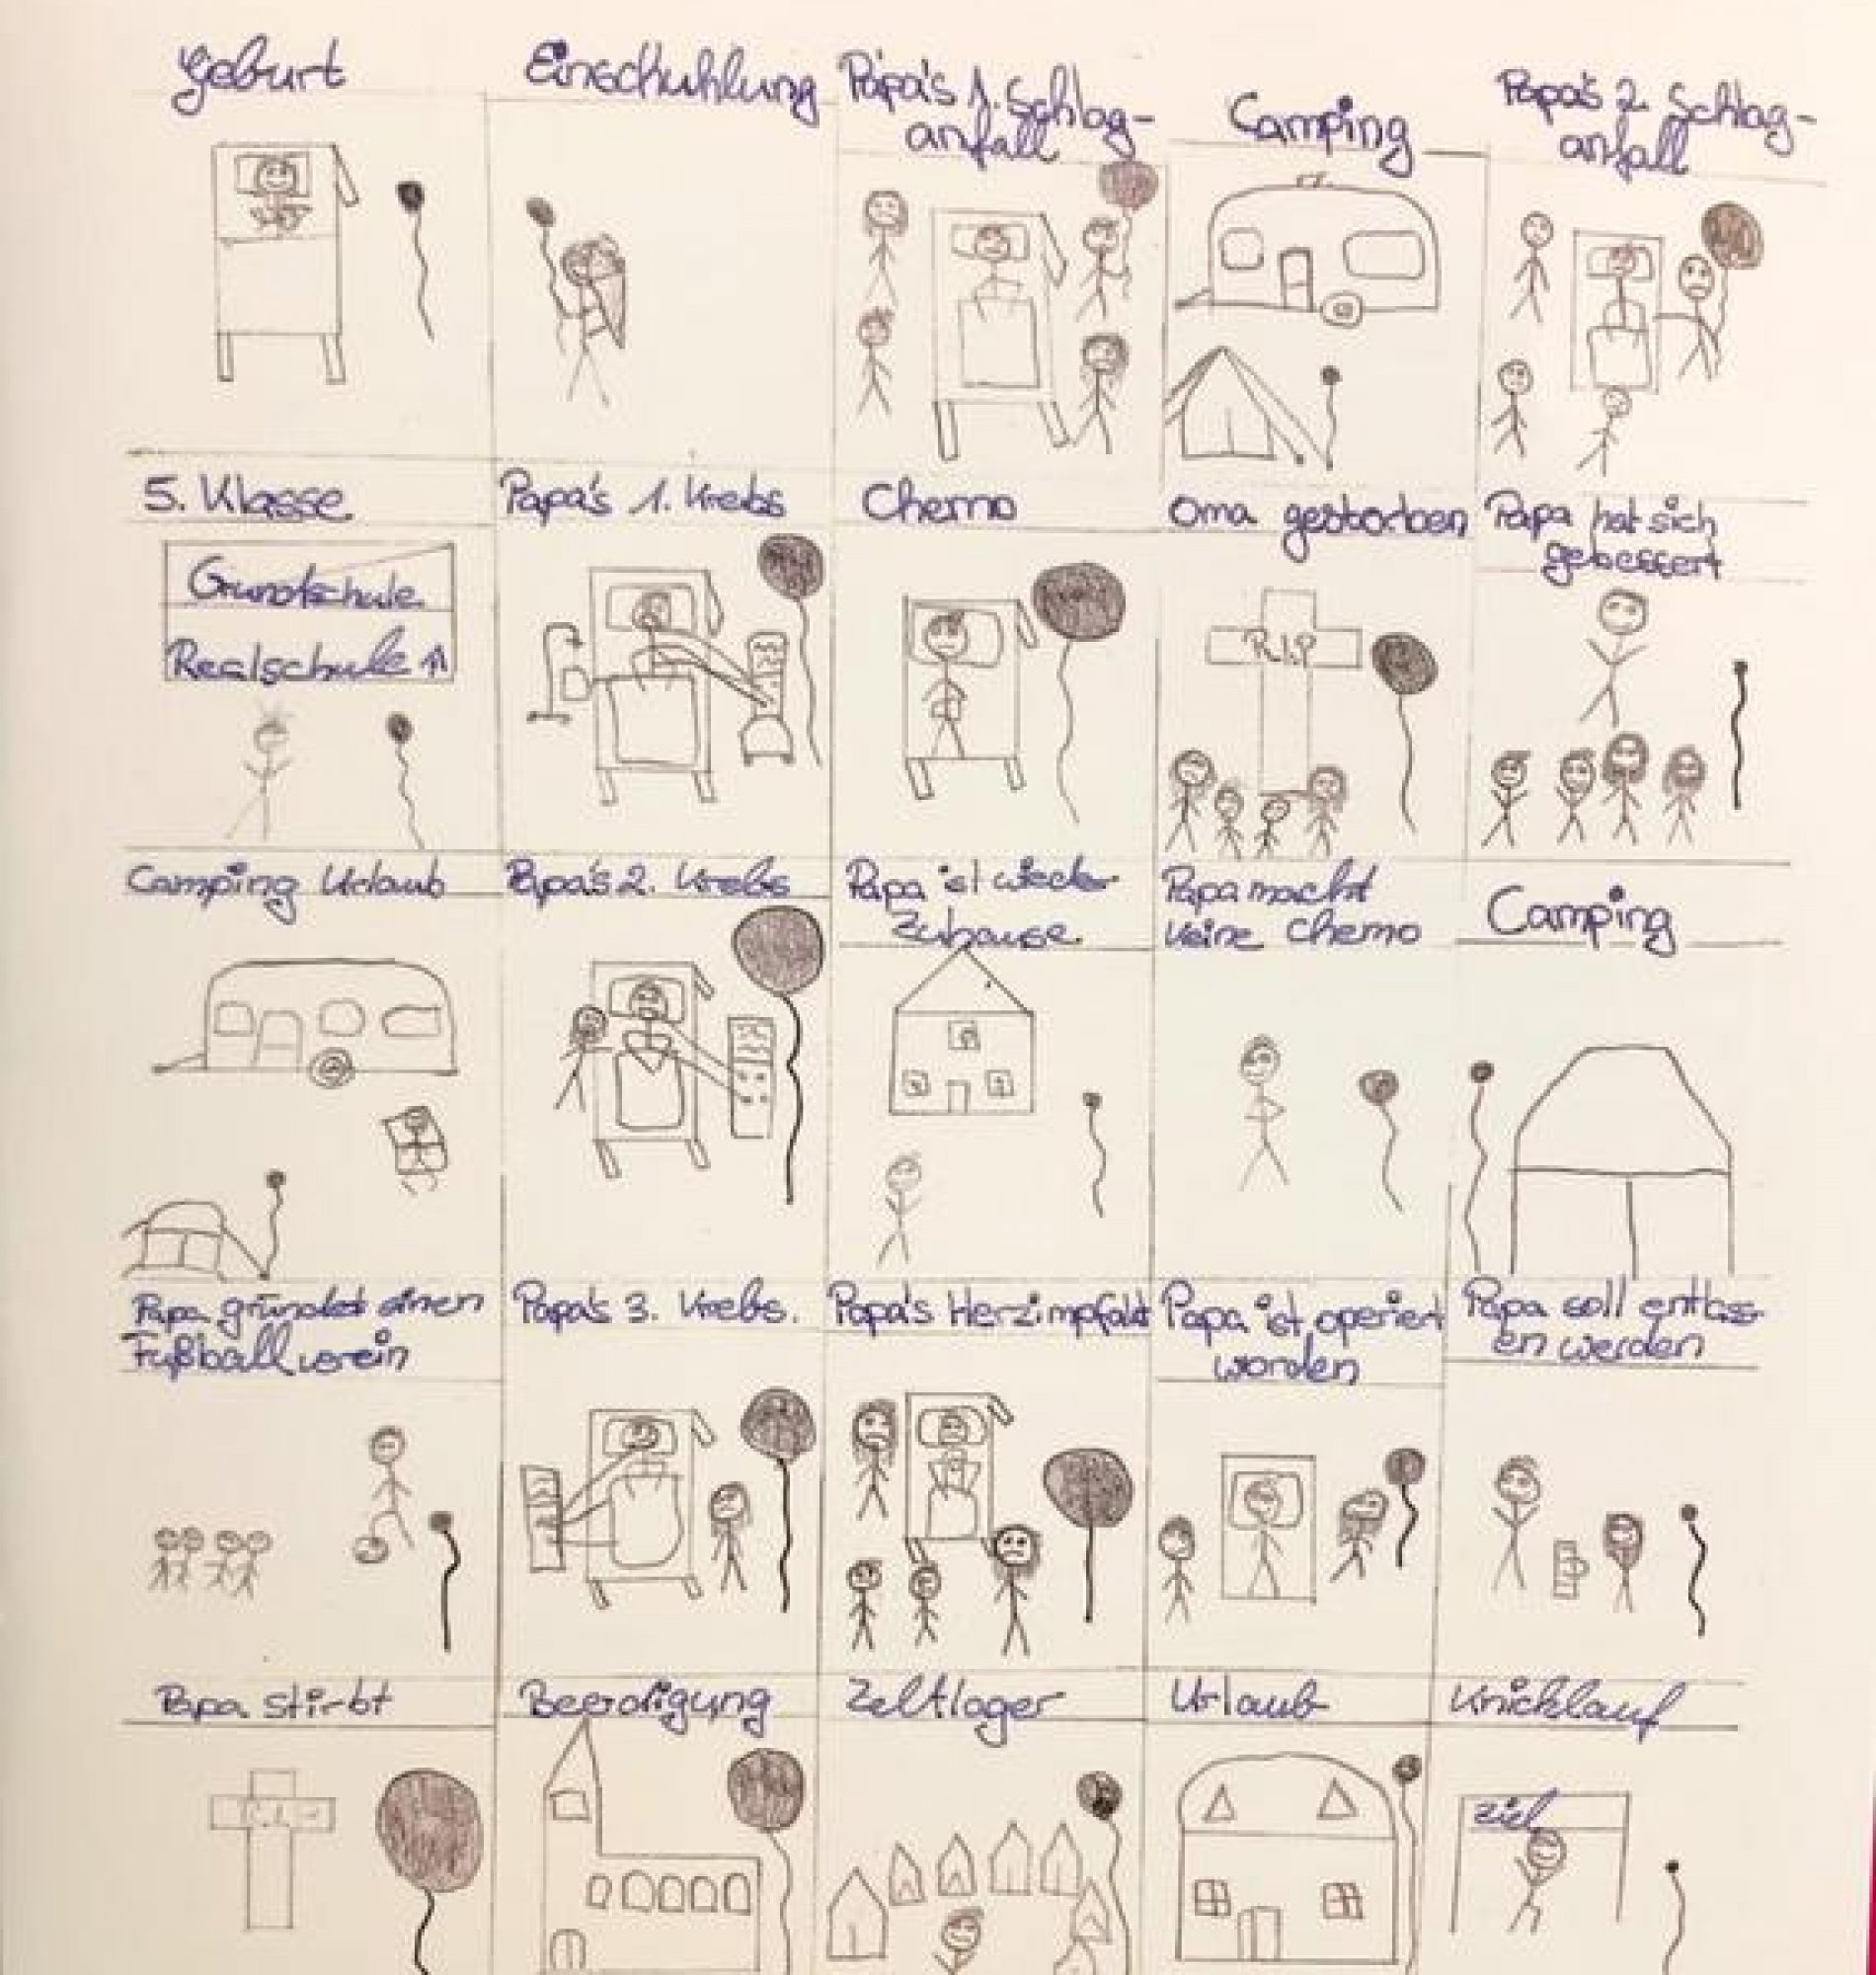 Geburt
Einschuhlung
Papa's 1. Schlag-
anfall
Camping
Papa's 2. Schlag-
anfall
5. Klasse
Grundschule
Realschule
Papa's 1. Krebs
Chemo
Oma gestorben
R.I.P
Papa hat sich
gebessert
Camping Urlaub
Papa's 2. Krebs
Papa ist wieder
Zuhause.
Papa macht
keine Chemo
Camping
Papa gründet einen
Fußballverein
Papa's 3. Krebs.
Papa's Herzimpfakt
Papa ist operiert
worden
Papa soll entlass-
en werden
Papa stirbt
Beerdigung
Zeltlager
Urlaub
Knicklauf
Ziel